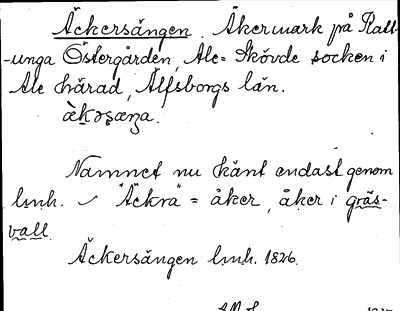 Äckersängen. Åkermark på Rall-
-unga Östergården, Ale-Skövde socken i
Ale härad, Älfsborgs län.
Namnet nu känt endast genom
lmh. "Äckra" = åker, åker i gräs-
vall.
Äckersängen lmh. 1826.